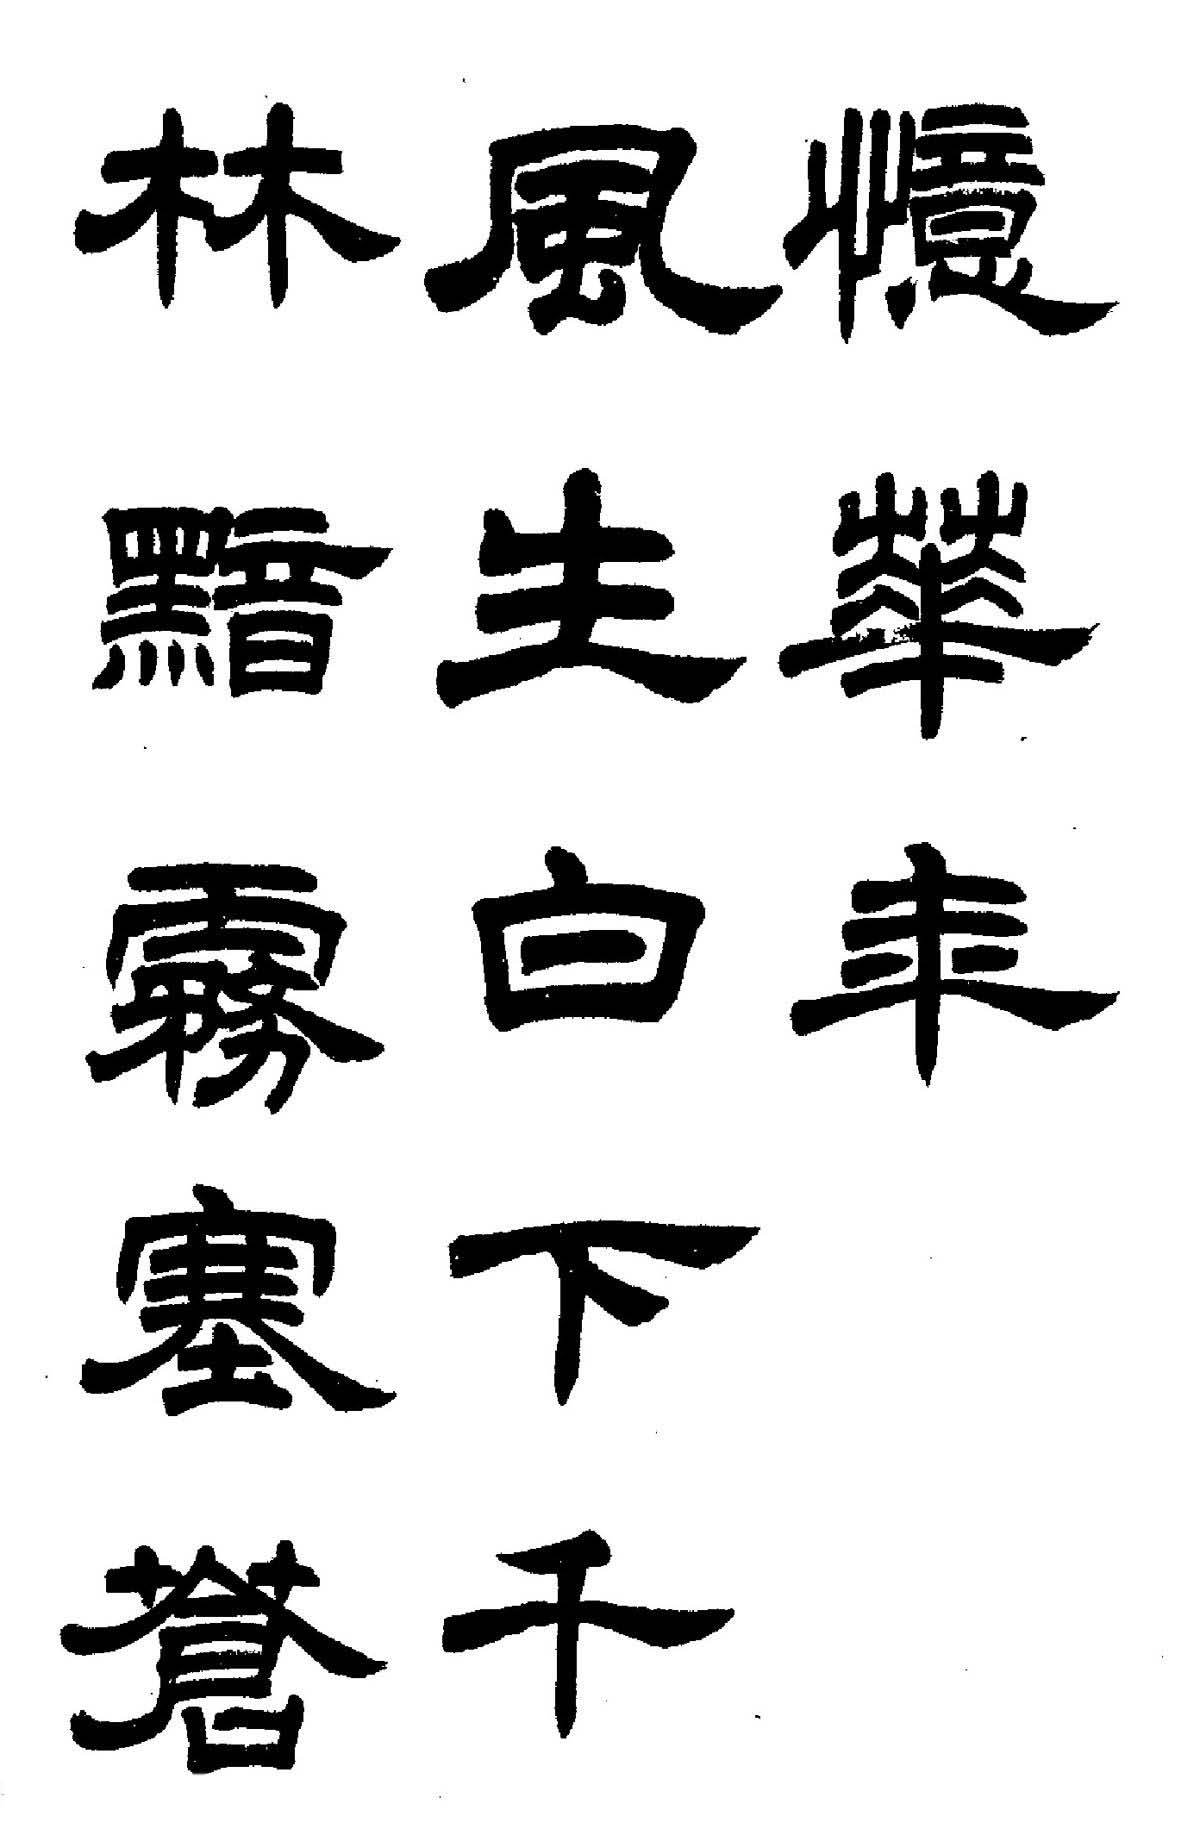 憶華年
風生白下千
林黯霧塞蒼